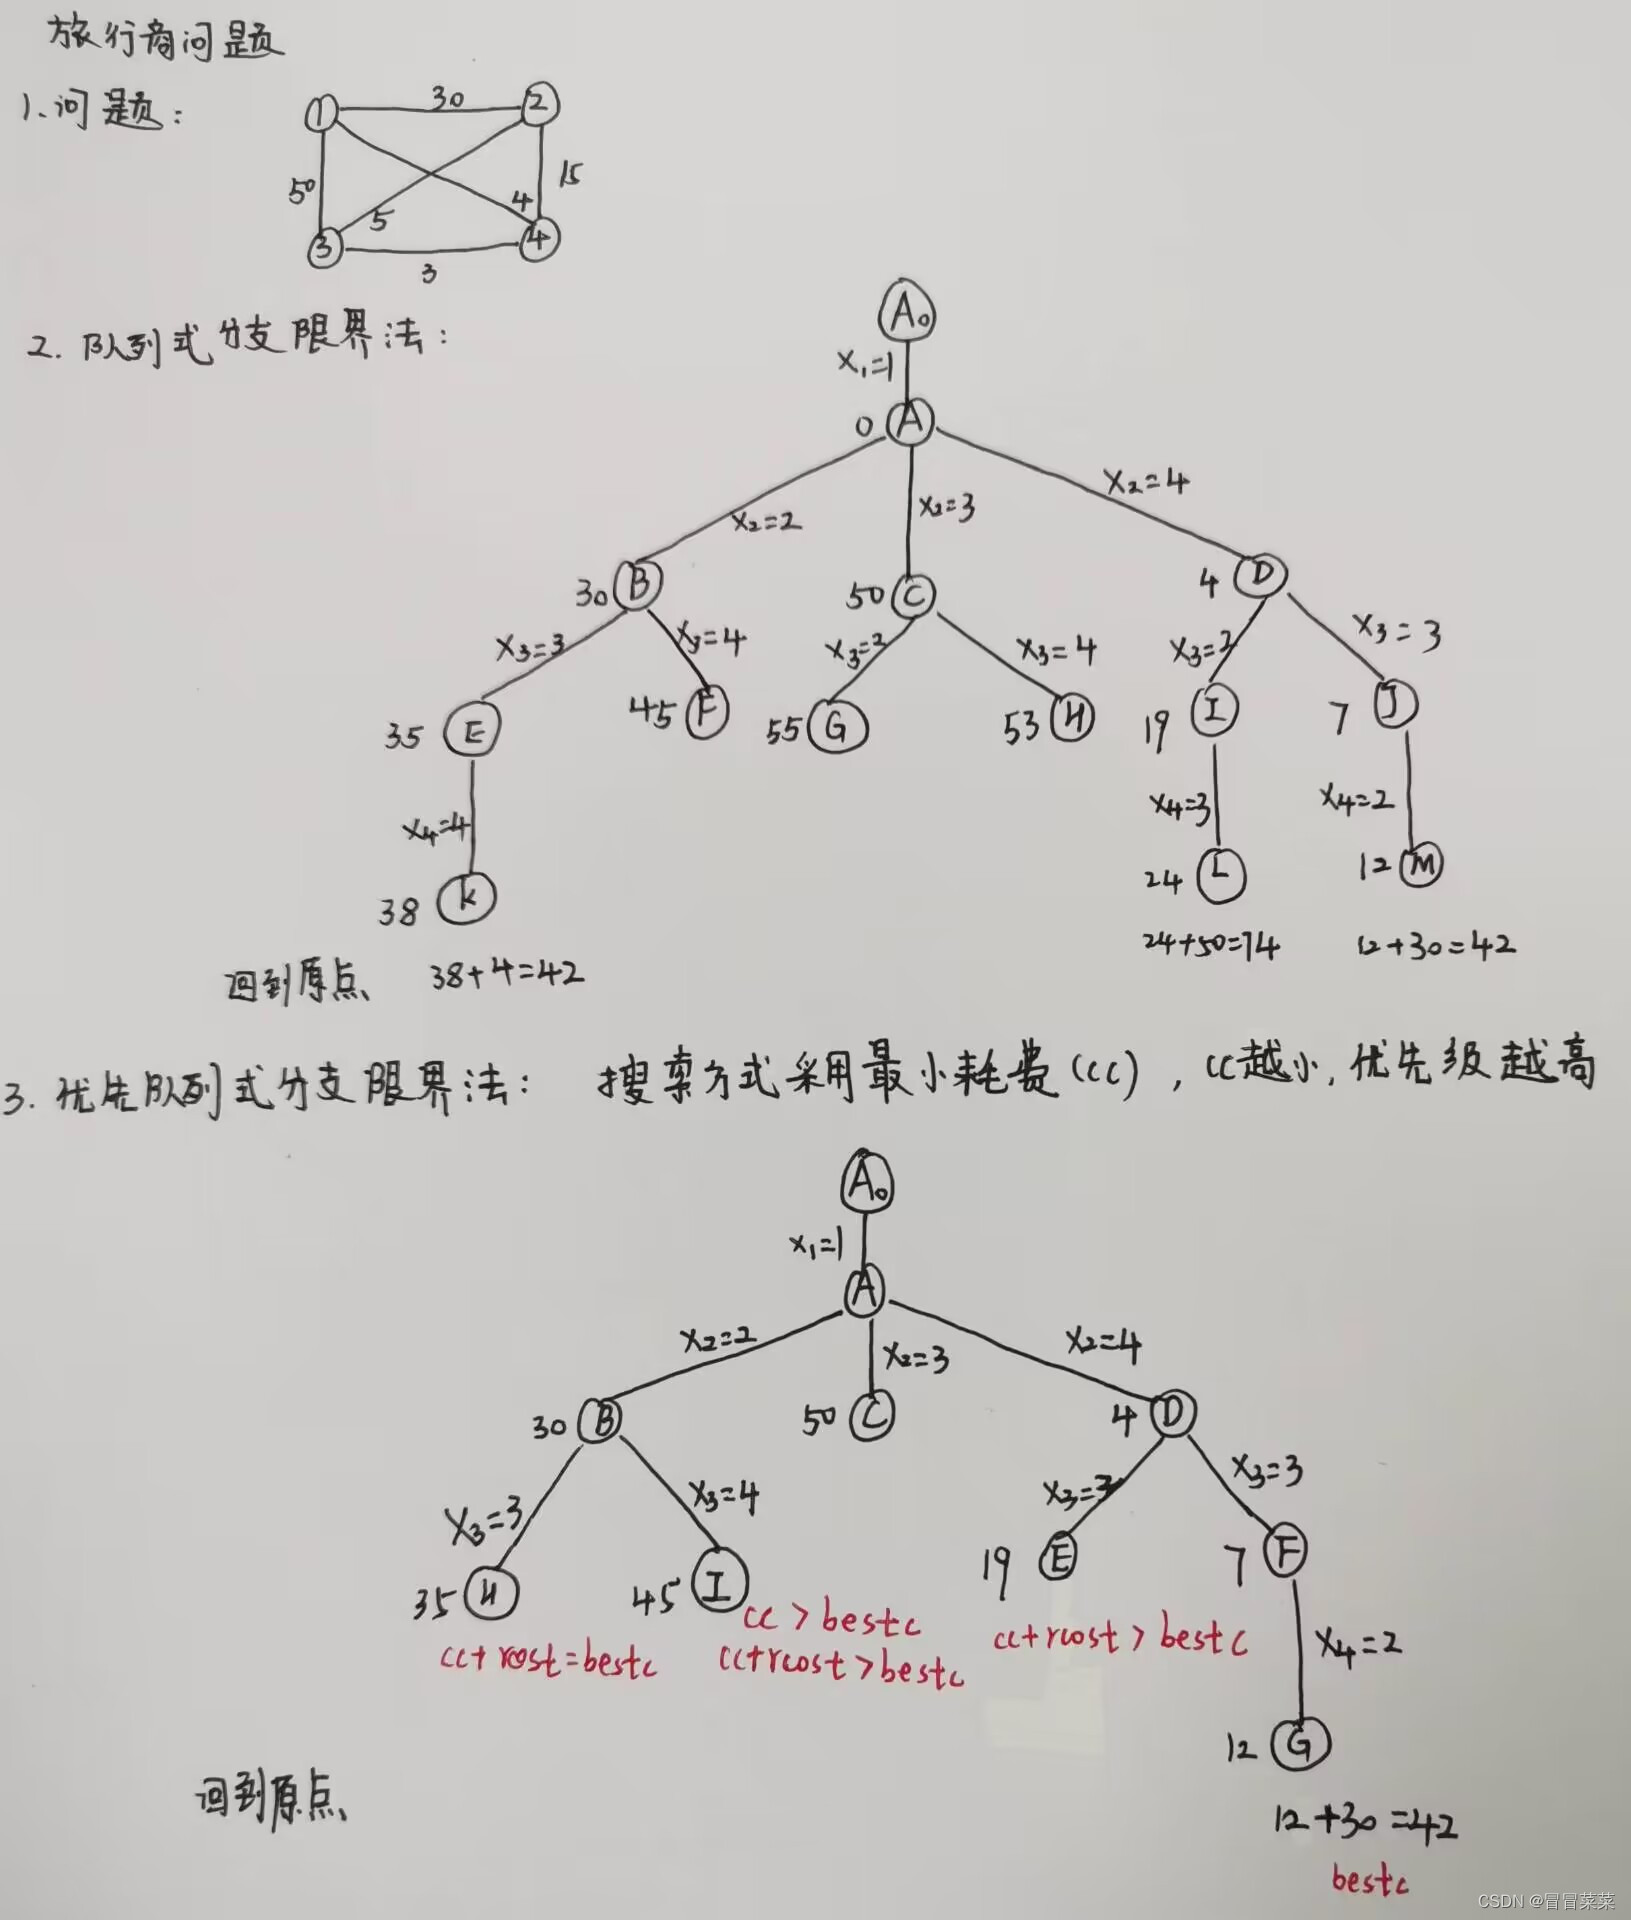 旅行商问题
1.问题:
1 30 2
50 5 4 15
3 3 4
2. 队列式分支限界法:
A₀
x₁=1
0 A
x₂=2 x₂=3 x₂=4
30 B 50 C 4 D
x₃=3 x₃=4 x₃=2 x₃=4 x₃=2 x₃=3
35 E 45 F 55 G 53 H 19 I 7 J
x₄=4 x₄=3 x₄=2
38 K 24 L 12 M
回到原点 38+4=42 24+50=74 12+30=42
3. 优先队列式分支限界法: 搜索方式采用最小耗费(cc), cc越小,优先级越高
A₀
x₁=1
A
x₂=2 x₂=3 x₂=4
30 B 50 C 4 D
x₃=3 x₃=4 x₃=3 x₃=3
35 H 45 I 19 E 7 F
cc > bestc
cc+rcost=bestc cc+rcost>bestc cc+rcost > bestc
x₄=2
12 G
回到原点
12+30=42
bestc
CSDN @冒冒菜菜